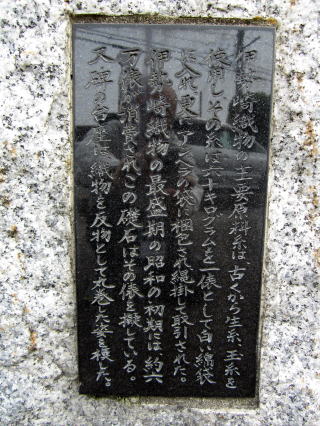 伊勢崎織物の主要原料糸は、古くから生糸、玉糸を
使用しその糸は六十キログラムを一俵として白い綿袋
に入れ更にアンペラの袋に梱包され縄掛で取引された。
伊勢崎織物の最盛期の昭和の初期には約六
万俵が消費されこの礎石はその俵を擬している。
又碑の台座は織物を反物として丸巻した姿を模した。